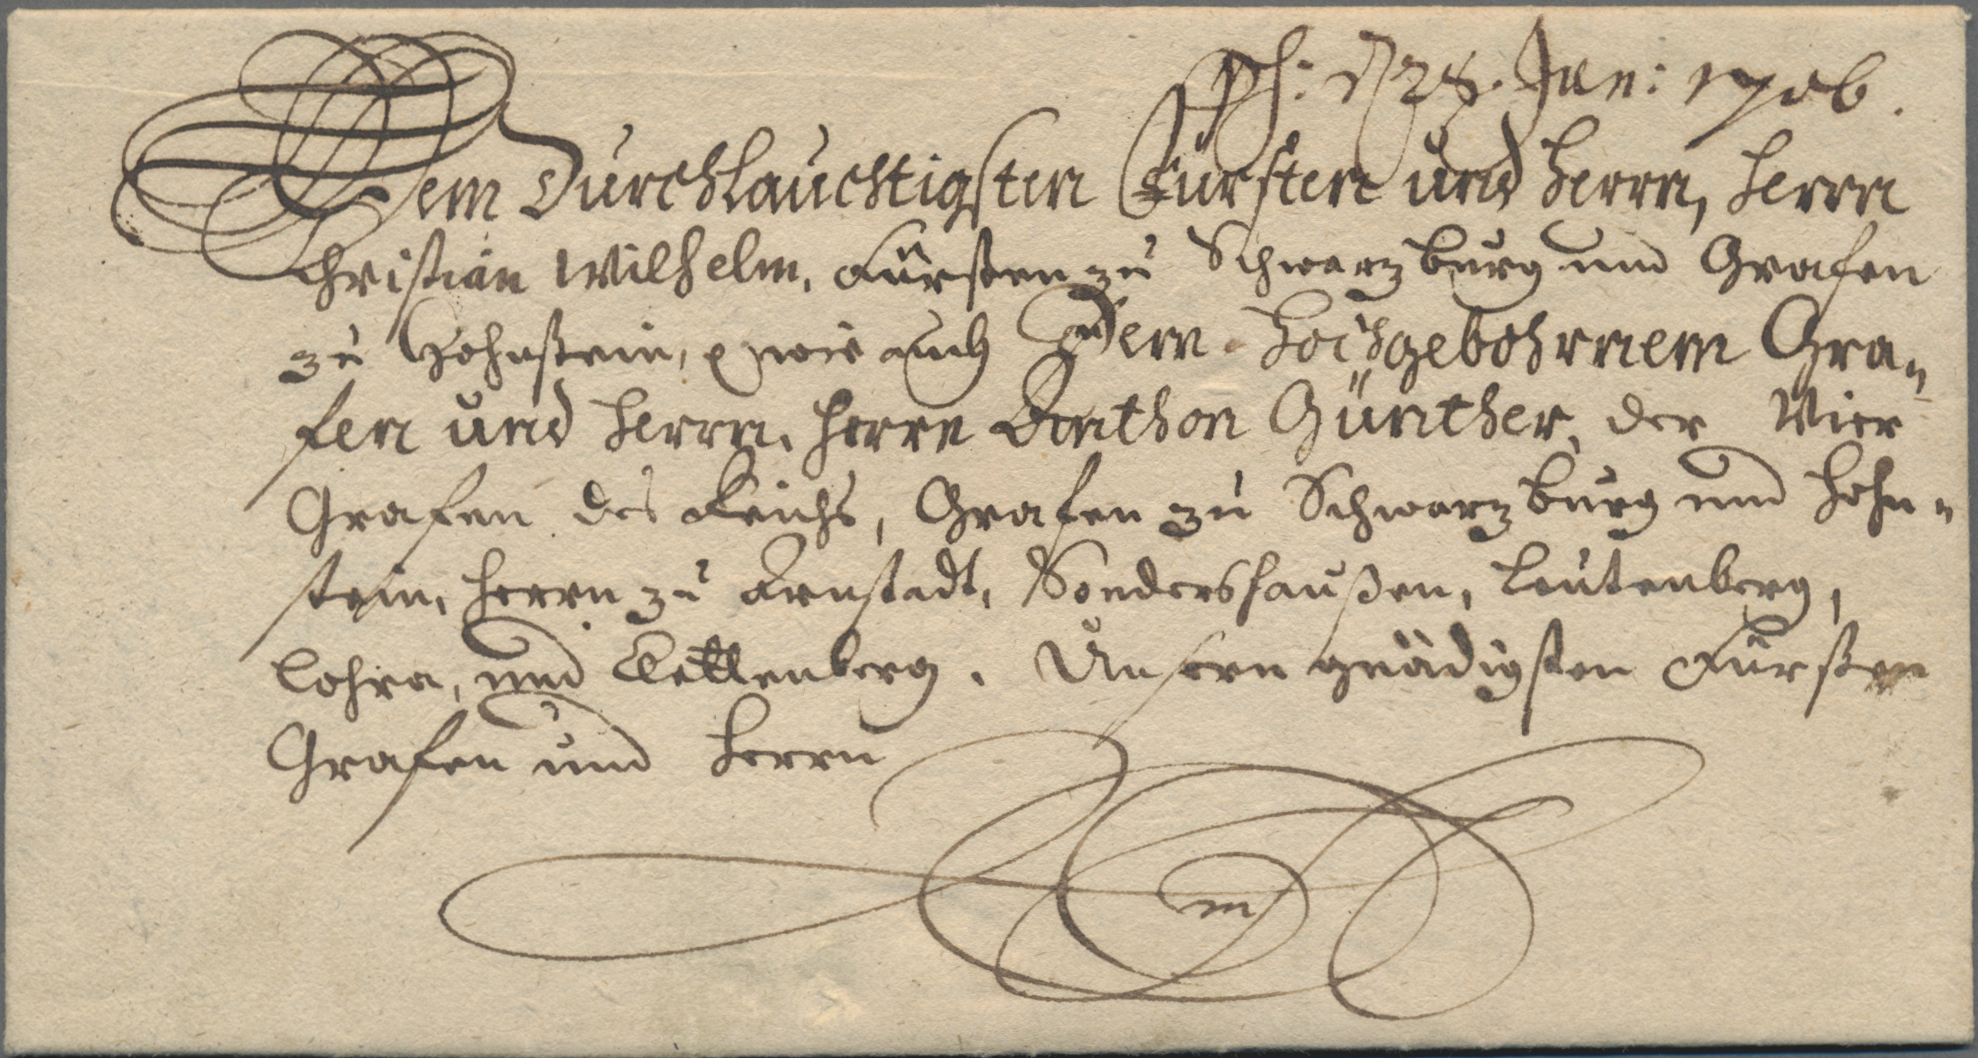 pſ: d 28. Jan: 1706.
Dem Durchlauchtigsten Fürsten und Herrn, Herrn
Christian Wilhelm, Fürsten zu Schwarzburg und Grafen
zu Hohnstein, wie auch Dem Hochgebohrnem Gra-
fen und Herrn, Herrn Anthon Günther, der Vier
Grafen des Reichs, Grafen zu Schwarzburg und Hohn-
stein, Herrn zu Arnstadt, Sondershaußen, Leutenberg,
Lohra, und Clettenberg. Unsern gnädigsten Fürsten
Grafen und Herrn